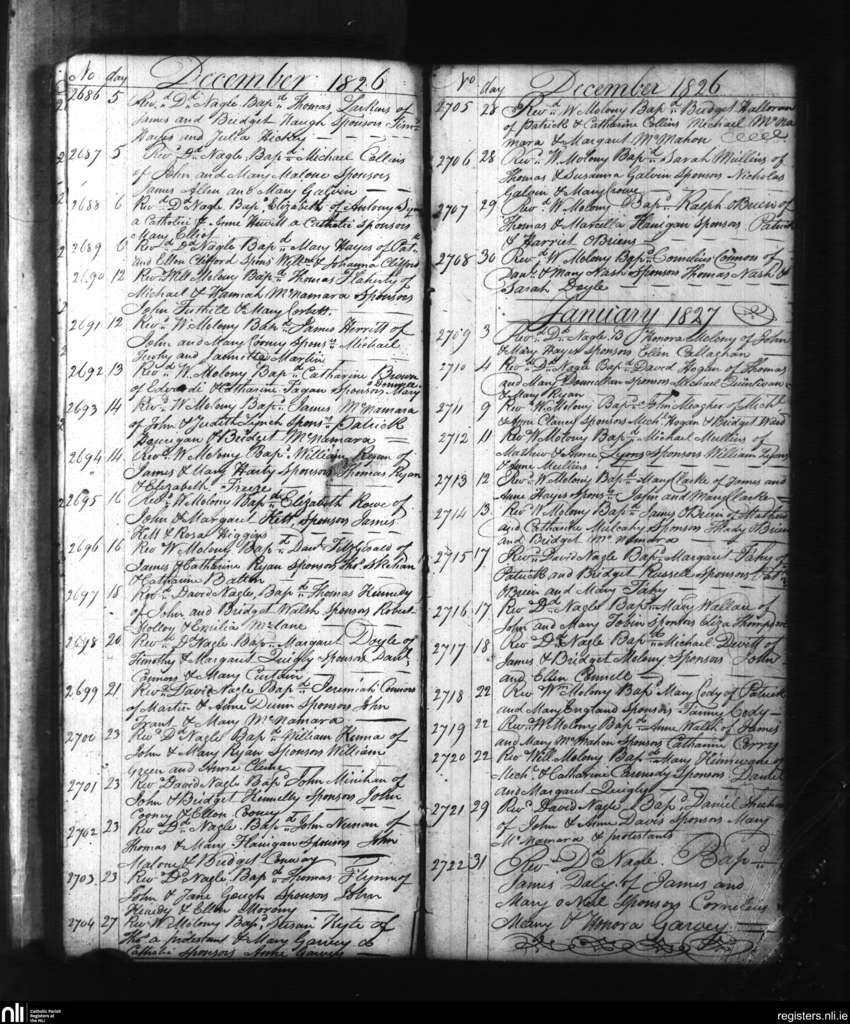 No day December 1826
2686 5 Revd. Dd. Nagle Bapd. Thomas Larkins of
James and Bridget Waugh Sponsors
Hayes and Julia Hickey
2687 5 Revd. Dd. Nagle Bapd. Michael Collins
of John and Mary Malone Sponsors
James Allen and Mary Galvin
2688 6 Revd. Dd. Nagle Bapd. Elizabeth of Antony
a Catholic & Anne Hewitt a Catholic Sponsors
Mary Elliot
2689 6 Revd. Dd. Nagle Bapd. Mary Hayes of Patk
and Ellen Clifford Spons Wm & Johanna Clifford
2690 12 Revd. W Molony Bapd. Thomas Flaherty of
Michael & Hannah McNamara Sponsors
John Tuthill & Mary Corbett
2691 12 Revd. W Molony Bapd. James Herritt of
John and Mary Corney Sponsrs. Michael
and Martin
2692 13 Revd. W Molony Bapd. Catharine Brown
of Edward & Catharine Fagan Sponsors Mary
2693 14 Revd. W Molony Bapd. James McNamara
of John & Judith Lynch Sponsr. Patrick
& Bridget McNamara
2694 14 Revd. W Molony Bapd. William Ryan of
James & Mary Harty Sponsors Thomas Ryan
& Elizabeth Freize
2695 16 Revd. W Molony Bapd. Elizabeth Rowe of
John & Margaret Kett Sponsors James
Kett & Rosa Higgins
2696 16 Rev W Molony Bapd. Danl. Fitzgerald of
James & Catherine Ryan Sponsors Thos.
& Catharine Balton
2697 18 Revd. David Nagle Bapd. Thomas Kennedy
of John and Bridget Walsh Sponsors Robert
Holloy & McLane
2698 20 Revd. D Nagle Bapd. Margaret Doyle of
Timothy & Margaret Quigly Sponsors Danl.
Connors & Mary Curtain
2699 21 Revd. David Nagle Bapd. Jeremiah Connors
of Martin & Anne Dunn Sponsors John
Frant & Mary McNamara
2700 23 Revd. Dd. Nagle Bapd. William Kenna of
John & Mary Ryan Sponsors William
Green and Anne Clune
2701 23 Rev David Nagle Bapd. John Minihan of
John & Bridget Kennelly Sponsors John
Cooney & Ellen Coney
2702 23 Revd. Dd. Nagle Bapd. John Neenan of
Thomas & Mary Flanigan Sponsors John
Malone & Bridget Conway
2703 23 Revd. Dd. Nagle Bapd. Thomas Flynn of
John & Jane Gough Sponsors John
Healy & Ellen Morony
2704 27 Revd. W Molony Bapd. Susan Kyte of
Thos. a protestant & Mary Garvey a
Catholic Sponsors Anne Garvey
No day December 1826
2705 28 Revd. W Molony Bapd. Bridget Halloran
of Patrick & Catharine Collins Michael McNa
mara & Margaret McMahon
2706 28 Revd. W. Molony Bapd. Sarah Mullins of
Thomas & Susanna Galvin Sponsors Nicholas
Galvin & Mary Crowe
2707 29 Revd. W Molony Bapd. Ralph OBrien of
Thomas & Marcella Flanigan Sponsors Patrick
& Harriet OBriens
2708 30 Revd. W Molony Bapd. Cornelius Connors of
Danl. & Mary Nash Sponsors Thomas Nash &
Sarah Doyle
January 1827
2709 3 Revd. Dd. Nagle B Honora Molony of John
& Mary Hayes Sponsors Ellen Callaghan
2710 4 Revd. Dd. Nagle Bapd. David Hogan of Thomas
and Mary Sponsors Michael
& Mary Ryan
2711 9 Revd. W Molony Bapd. John Meagher of Michl.
& Ann Clancy Sponsors Mich. Hogan & Bridget Ward
2712 11 Revd. W Molony Bapd. Michael Mullins of
Mathew & Anne Lyons Sponsors William Lyons
& Anne Mullins
2713 12 Revd. W Molony Bapd. Mary Clarke of James and
Anne Hayes Sponsrs. John and Mary Clarke
2714 13 Revd. W Molony Bapd. James OBrien of
and Catharine Mulcahy Sponsors OBrien
and Bridget McNamara
2715 17 Revd. David Nagle Bapd. Margaret Fahy of
Patrick and Bridget Russell Sponsors Pat
OBrien and Mary Fahy
2716 17 Revd. Dd. Nagle Bapd. Mary Wallace of
John and Mary Tobin Sponsors Eliza Thompson
2717 18 Revd. Dd. Nagle Bapd. Michael Devitt of
James & Bridget Molony Sponsors John
and Ellen Connell
2718 22 Revd. Wm Molony Bapd. Mary Cody of Patrick
and Mary England Sponsors Fanny Cody
2719 22 Revd. W Molony Bapd. Anne Walsh of James
and Mary McMahon Sponsors Catharine Corry
2720 22 Revd. Will Molony Bapd. Mary of
Michl. & Catharine Sponsors Daniel
and Margaret Quigly
2721 29 Revd. David Nagle Bapd. Daniel
of John & Anne Davis Sponsors Mary
McNamara & protestants
2722 31 Revd. Dd. Nagle Bapd.
James Daly of James and
Mary o Neil Sponsors Cornelius
Meany & Honora Garvey
nli Catholic Parish
Registers at
the NLI
registers.nli.ie